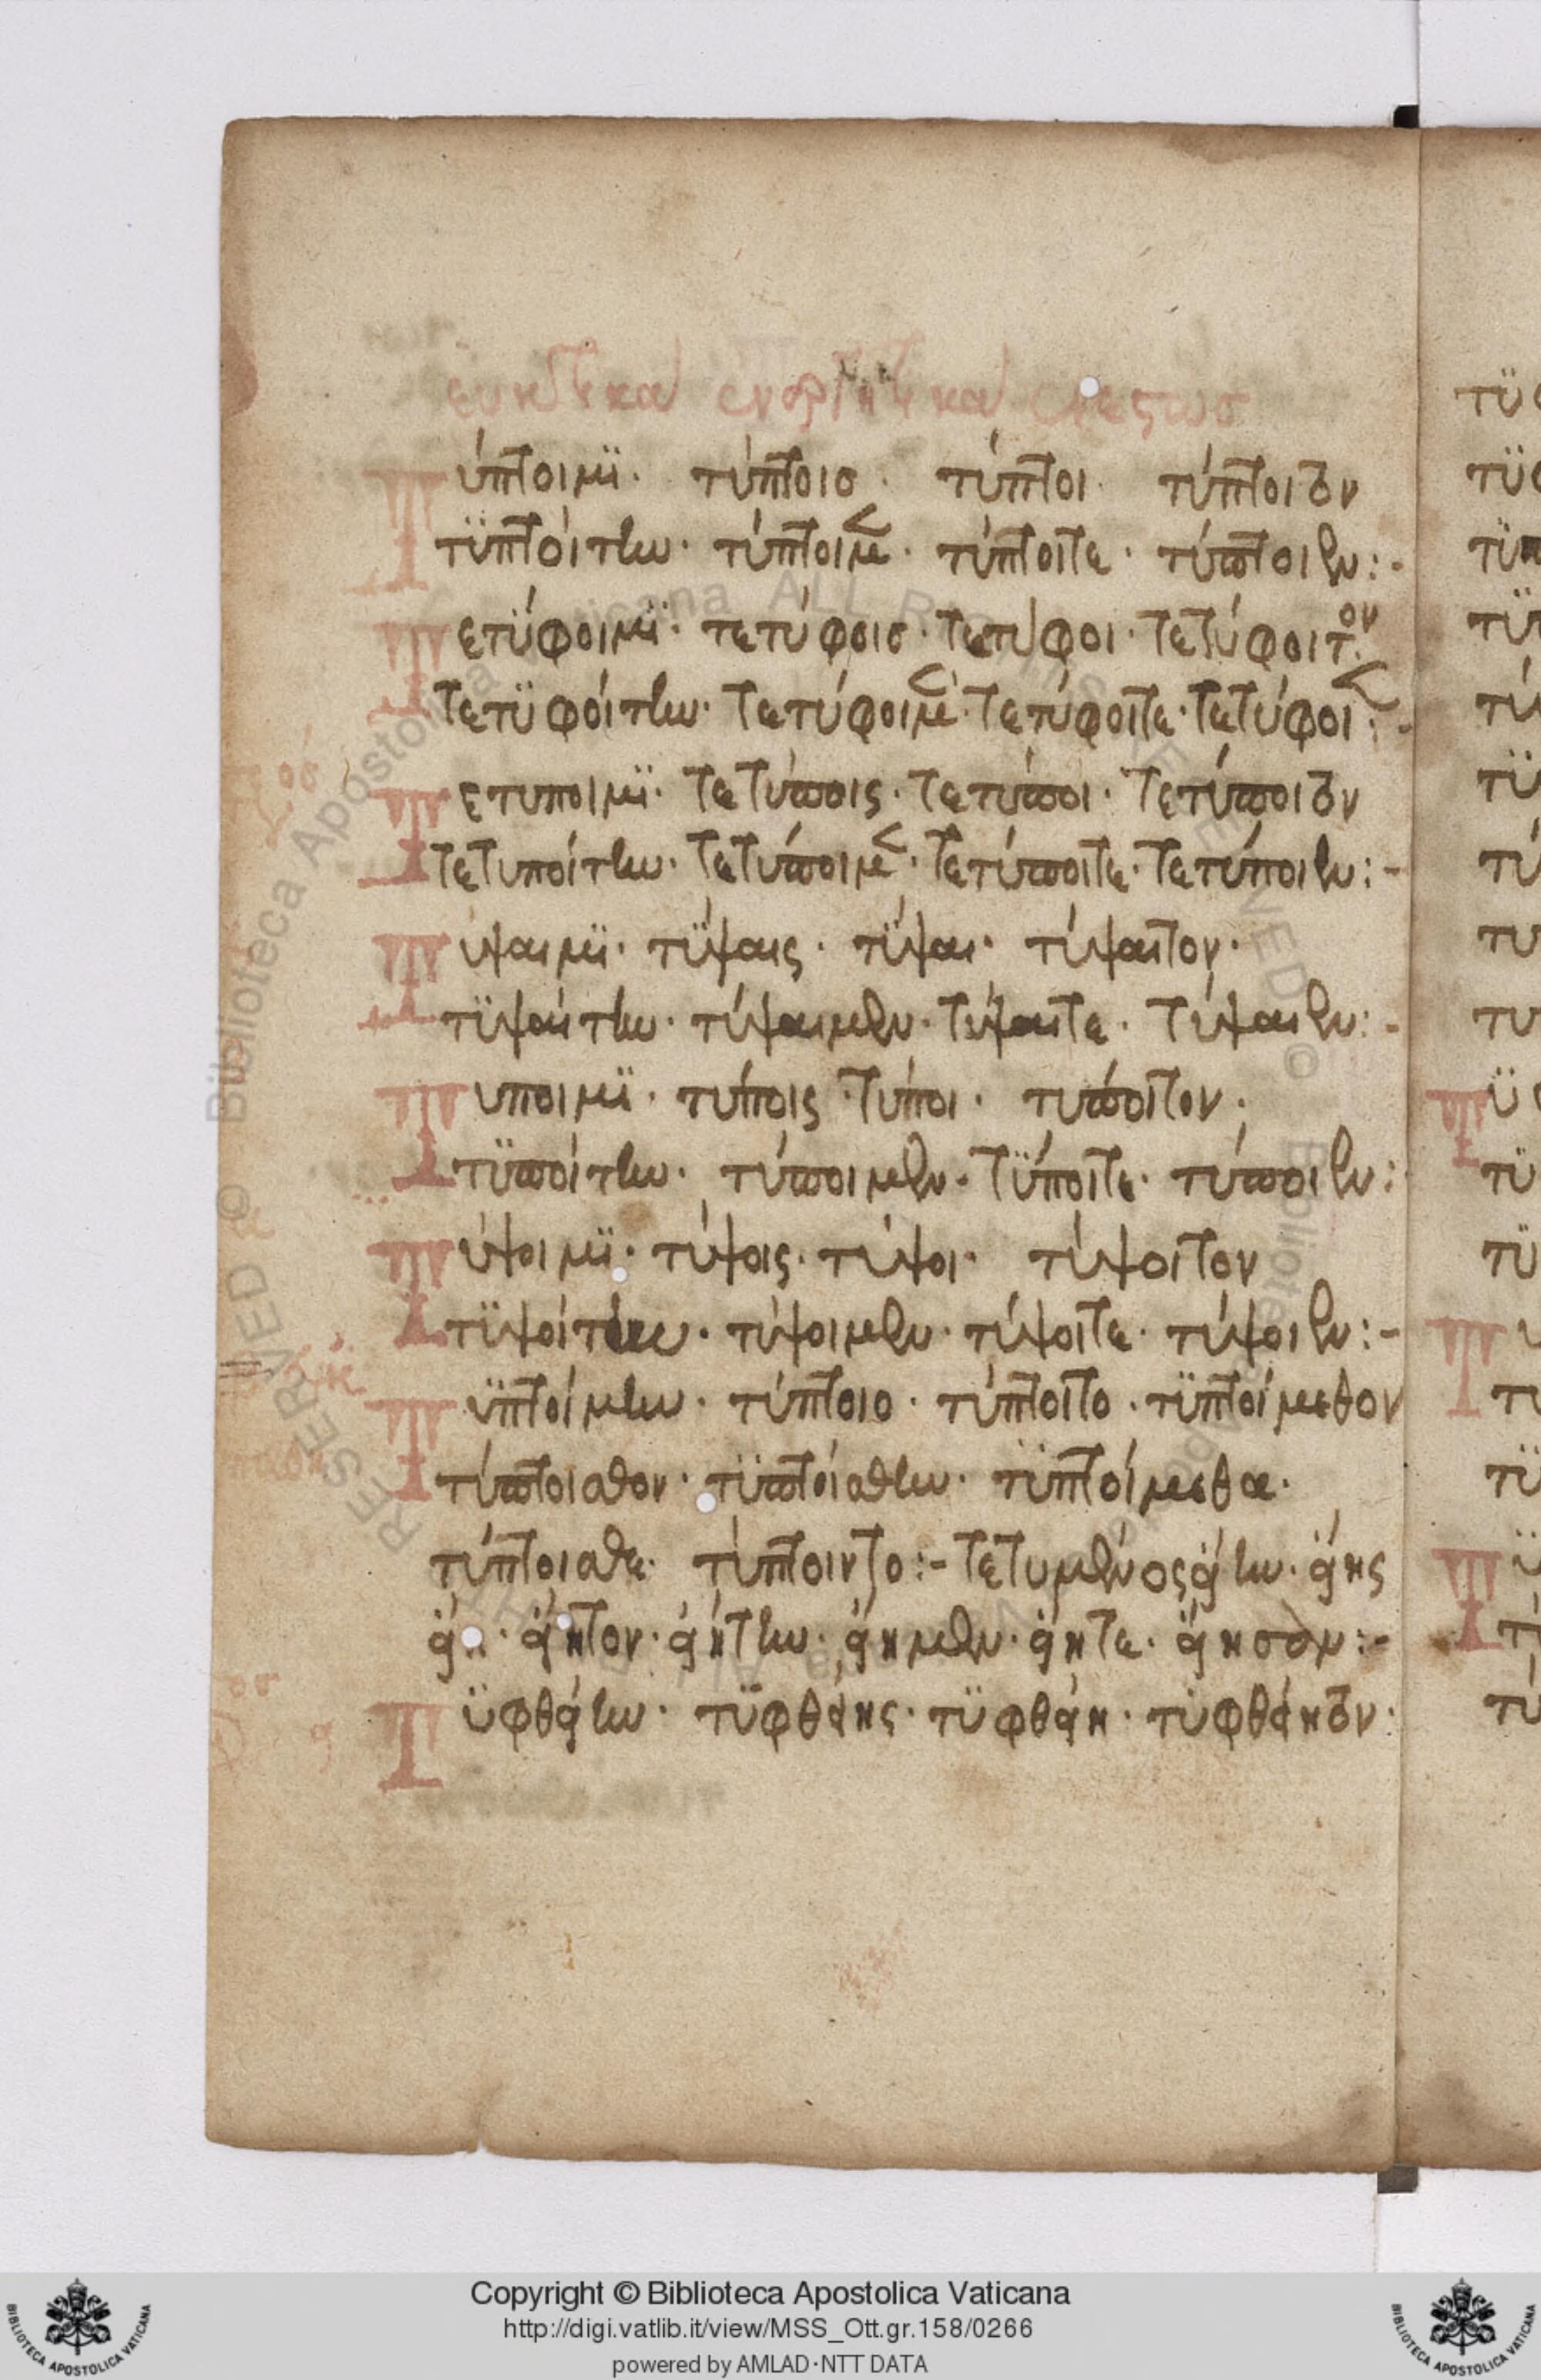 εὐκτικὰ ἐνεργητικὰ ἐνεστῶσ
Τύπτοιμϊ· τύπτοισ· τύπτοι· τύπτοιτον
τϋπτοίτην· τύπτοιμεν· τύπτοιτε· τύπτοιεν:-
Τετύφοιμϊ· τετύφοισ· τετύφοι· τετύφοιτον
τετϋφοίτην· τετύφοιμεν· τετύφοιτε· τετύφοιεν:-
Τετυποιμϊ· τετύποις· τετύποι· τετύποιτον
τετυποίτην· τετύποιμεν· τετύποιτε· τετύποιεν:-
Τύψαιμϊ· τύψαις· τύψαι· τύψαιτον·
τϋψαίτην· τύψαιμεν· τύψαιτε· τύψαιεν:-
Τυποιμϊ· τύποις· τύποι· τύποιτον·
τϋποίτην· τύποιμεν· τύποιτε· τύποιεν:
Τύψοιμϊ· τύψοις· τύψοι· τύψοιτον
τϋψοίτην· τύψοιμεν· τύψοιτε· τύψοιεν:-
Τϋπτοίμην· τύπτοιο· τύπτοιτο· τϋπτοίμεθον
τύπτοισθον· τϋπτοίσθην· τϋπτοίμεθα·
τύπτοισθε· τύπτοιντο:- τετυμμένος εἴην· εἴης
εἴη· εἴητον· εἰήτην· εἴημεν· εἴητε· εἴησαν:-
Τϋφθείην· τϋφθείης· τϋφθείη· τϋφθείητον·
τϋ
τϋ
Copyright © Biblioteca Apostolica Vaticana
http://digi.vatlib.it/view/MSS_Ott.gr.158/0266
powered by AMLAD·NTT DATA